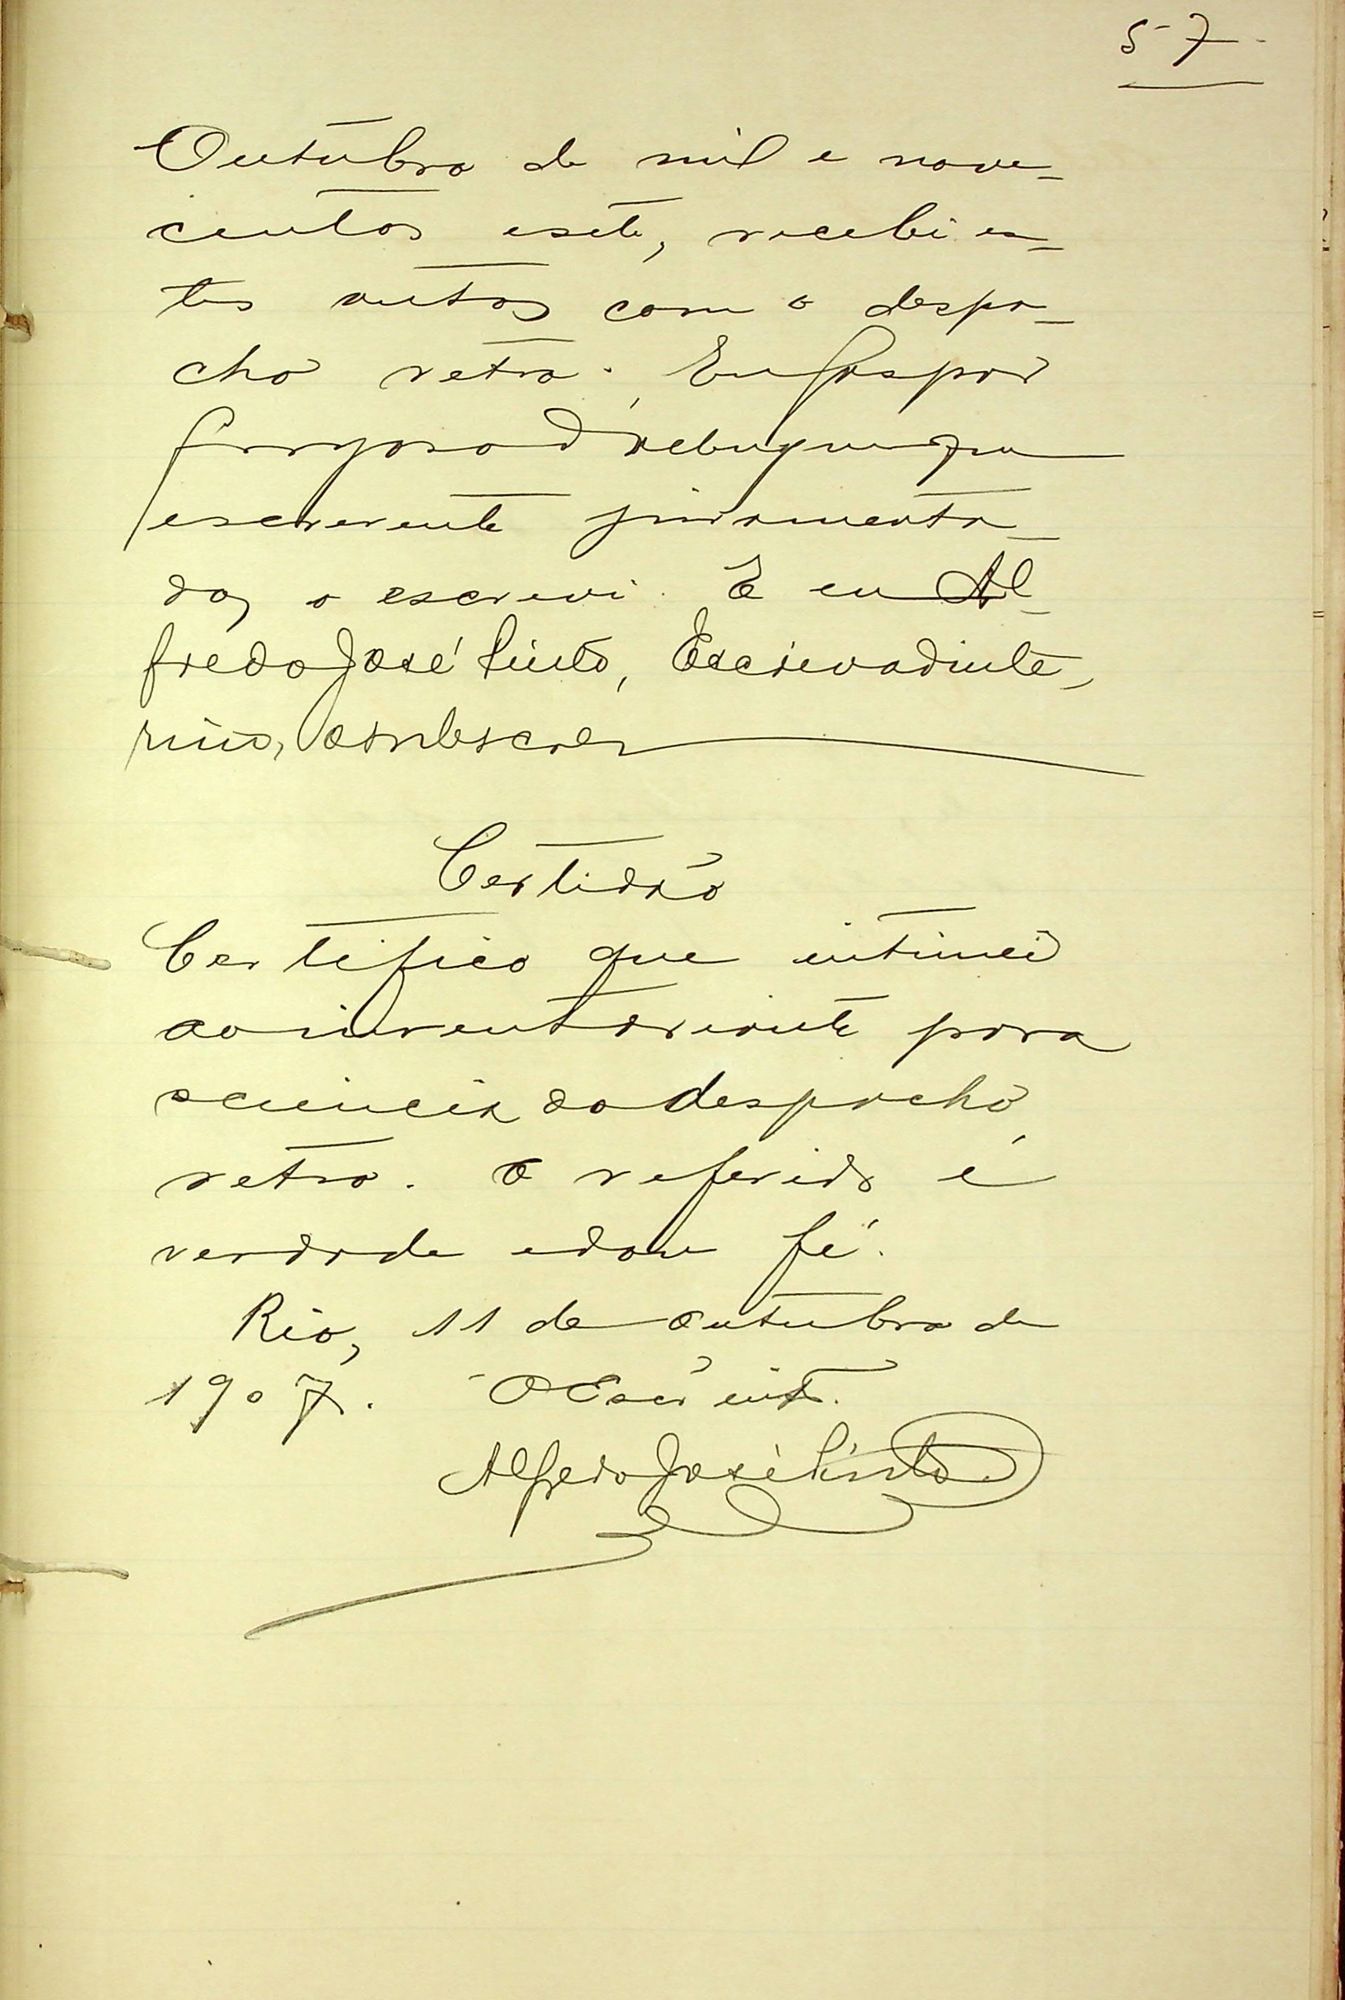 57
Outubro de mil e nove-
centos e sete, recebi es-
tes autos com o despa-
cho retro. Eu, Gaspar
d'Albuquerque
escrevente juramenta-
do, o escrevi. E eu Al-
fredo José Pinto, Escrivão dinte-
rino, o subscrevi
Certidão
Certifico que intimei
ao inventariante para
sciencia do despacho
retro. O referido é
verdade e dou fé.
Rio, 11 de Outubro de
1907. O Escr. intº.
Alfredo José Pinto